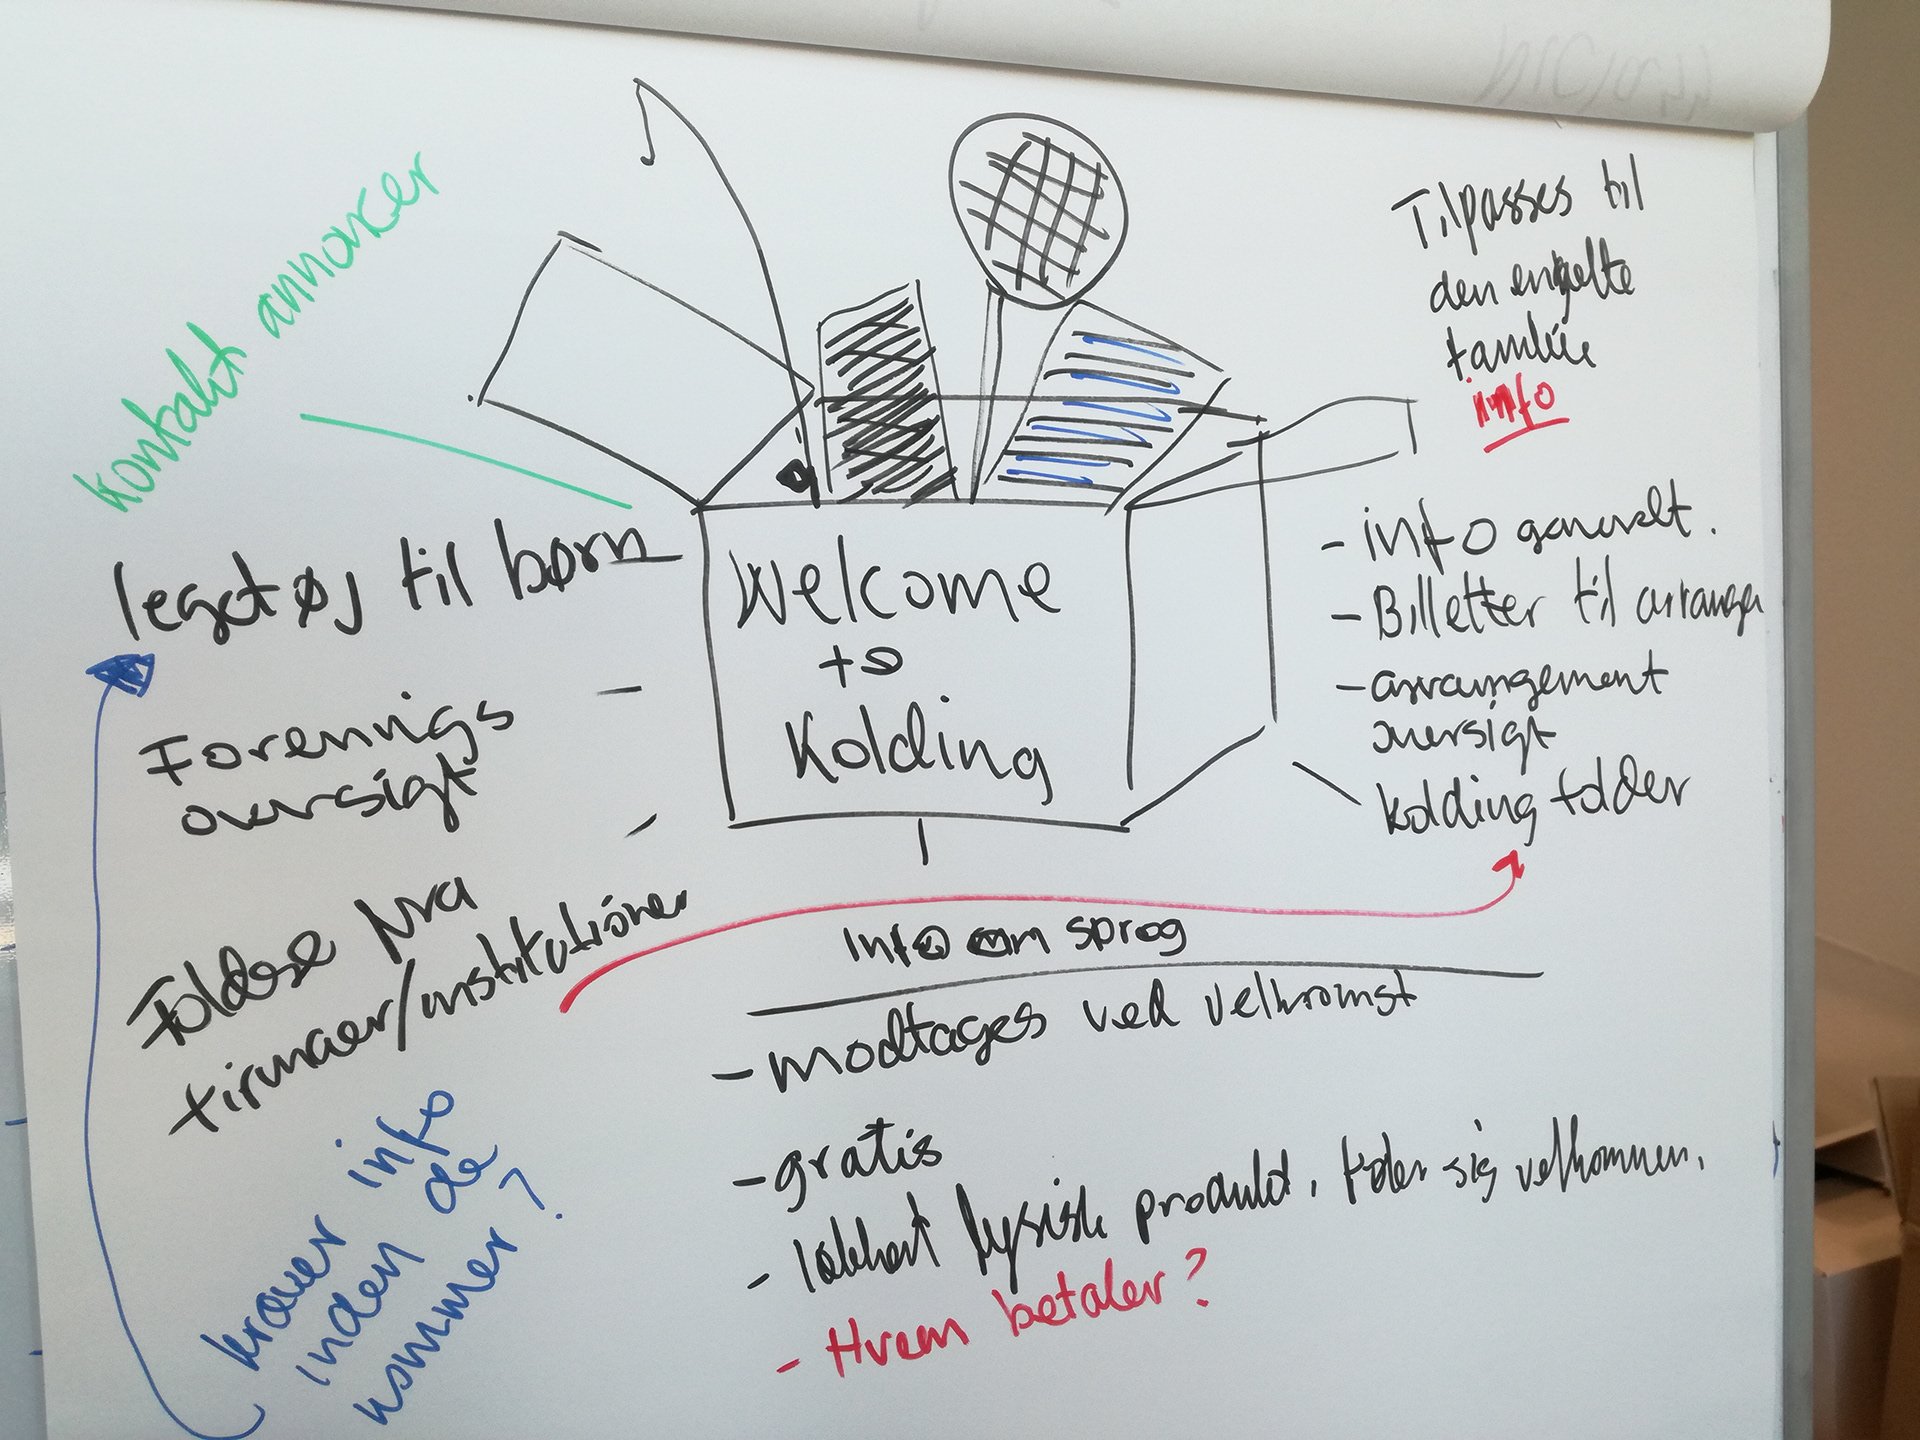 kontakt annoncer
legetøj til børn
Forenings
oversigt
Foldere fra
firmaer/institutioner
kræver info
inden de
kommer?
Welcome
to
Kolding
Tilpasses til
den enkelte
familie
info
- info generelt.
- Billetter til arrange
- arrangement
oversigt
kolding folder
Info om sprog
- modtages ved velkomst
- gratis
- lækkert fysisk produkt, føler sig velkommen.
- Hvem betaler?